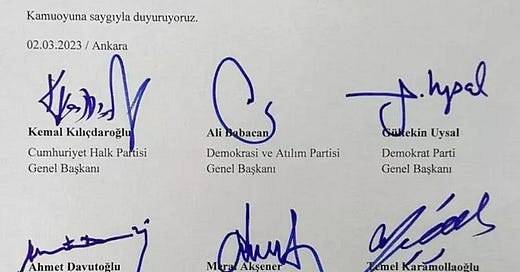 Kamuoyuna saygıyla duyuruyoruz.
02.03.2023 / Ankara
Kemal Kılıçdaroğlu Ali Babacan Gültekin Uysal
Cumhuriyet Halk Partisi Demokrasi ve Atılım Partisi Demokrat Parti
Genel Başkanı Genel Başkanı Genel Başkanı
Ahmet Davutoğlu Meral Akşener Temel Karamollaoğlu